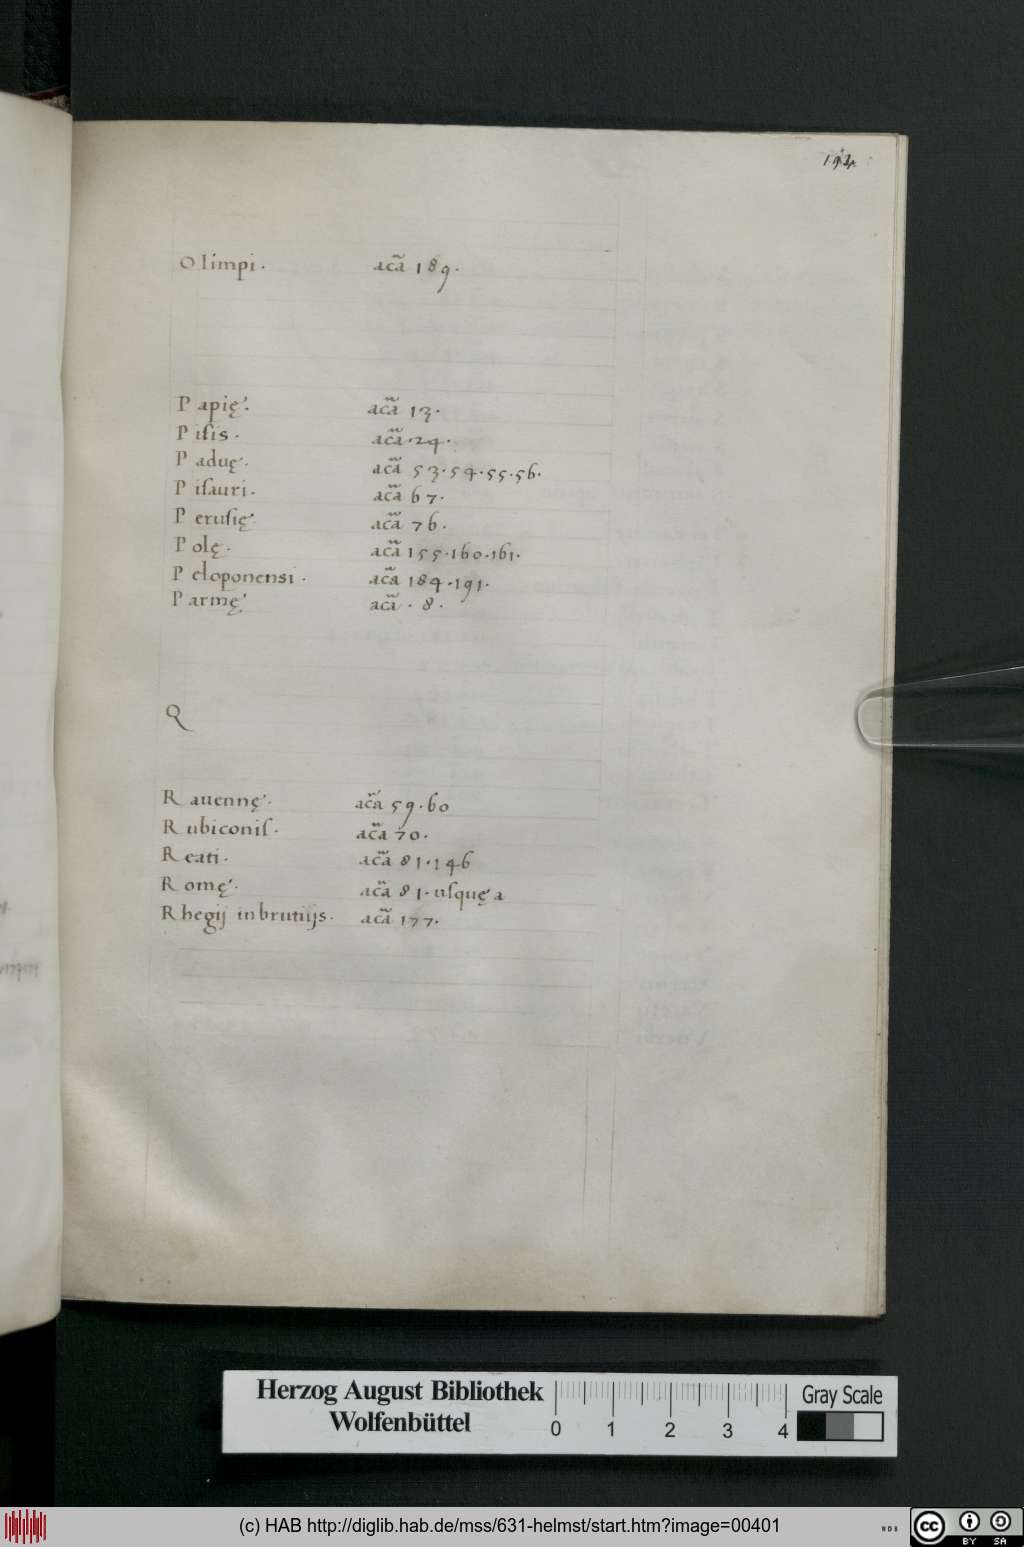 194
Olimpi . acã 189 .
Papię . acã 13 .
Piſis . acã . 24 .
Paduę . acã 53 . 54 . 55 . 56 .
Piſauri . acã 67 .
Peruſię acã 76 .
Polę . acã 155 . 160 . 161 .
Peloponensi . acã 184 . 191 .
Parmę acã . 8 .
Q
Rauennę . acã 59 . 60
Rubiconiſ . acã 70 .
Reati . acã 81 . 146
Romę . acã 81 . uſquę a
Rhegij in brutiijs . acã 177 .
Herzog August Bibliothek
Wolfenbüttel
0 1 2 3 4
Gray Scale
(c) HAB http://diglib.hab.de/mss/631-helmst/start.htm?image=00401
WDB
cc BY SA